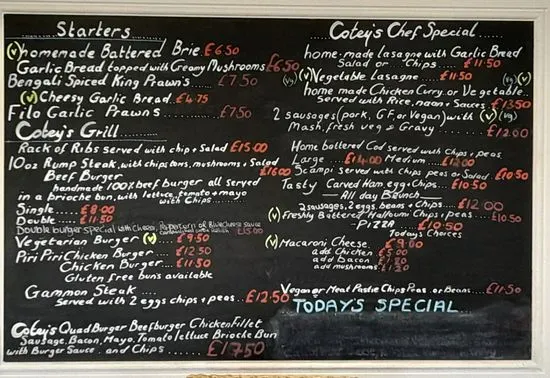 Starters
(v) homemade Battered Brie. £6.50
Garlic Bread topped with Creamy Mushrooms £6.50
Bengali Spiced King Prawn's ...... £7.50
(v) Cheesy Garlic Bread £4.75
Filo Garlic Prawns ...... £7.50
Cotey's Grill
Rack of Ribs served with chip & Salad £15.00
10oz Rump Steak, with chips toms, mushrooms & Salad
£16.00
Beef Burger
handmade 100% beef burger all served
in a brioche bun, with lettuce, tomato & mayo
with Chips
Single ...... £8.00
Double ...... £11.50
Double burger special with cheese, Pepperoni or Blue Cheese sauce
£15.00
Vegetarian Burger (v) ... £9.50
Piri Piri Chicken Burger ... £12.50
Chicken Burger ...... £11.50
Gluten Free buns available
Gammon Steak ....
served with 2 eggs chips & peas ... £12.50
Cotey's Quad Burger Beefburger Chicken Fillet
Sausage, Bacon, Mayo, Tomato lettuce Brioche Bun
with Burger Sauce. and Chips ...... £17.50
Cotey's Chef Special ....
home-made lasagne with Garlic Bread
Salad or Chips .... £11.50
(vg) (v) Vegetable Lasagne ...... £11.50 (vg) (v)
home made Chicken Curry. or Vegetable
served with Rice, naan & Sauces. £13.50
2 sausages (pork, GF, or Vegan) with (v) (vg)
Mash, fresh veg & Gravy ...... £12.00
Home battered Cod served with Chips & peas
Large ... £14.00 Medium .... £12.00
Scampi served with Chips peas or Salad £10.50
Tasty Carved Ham egg & Chips .... £10.50
All day Brunch
2 sausages, 2 eggs, beans & Chips ... £12.00
(v) Freshly Battered Halloumi Chips & peas ... £10.50
PIZZA ... £10.50
Todays Choices
(v) Macaroni Cheese. £9.00
add Chicken £5.00
add bacon £1.20
add mushrooms £1.20
Vegan or Meat Pastie Chips Peas. or Beans .... £11.50
TODAY'S SPECIAL